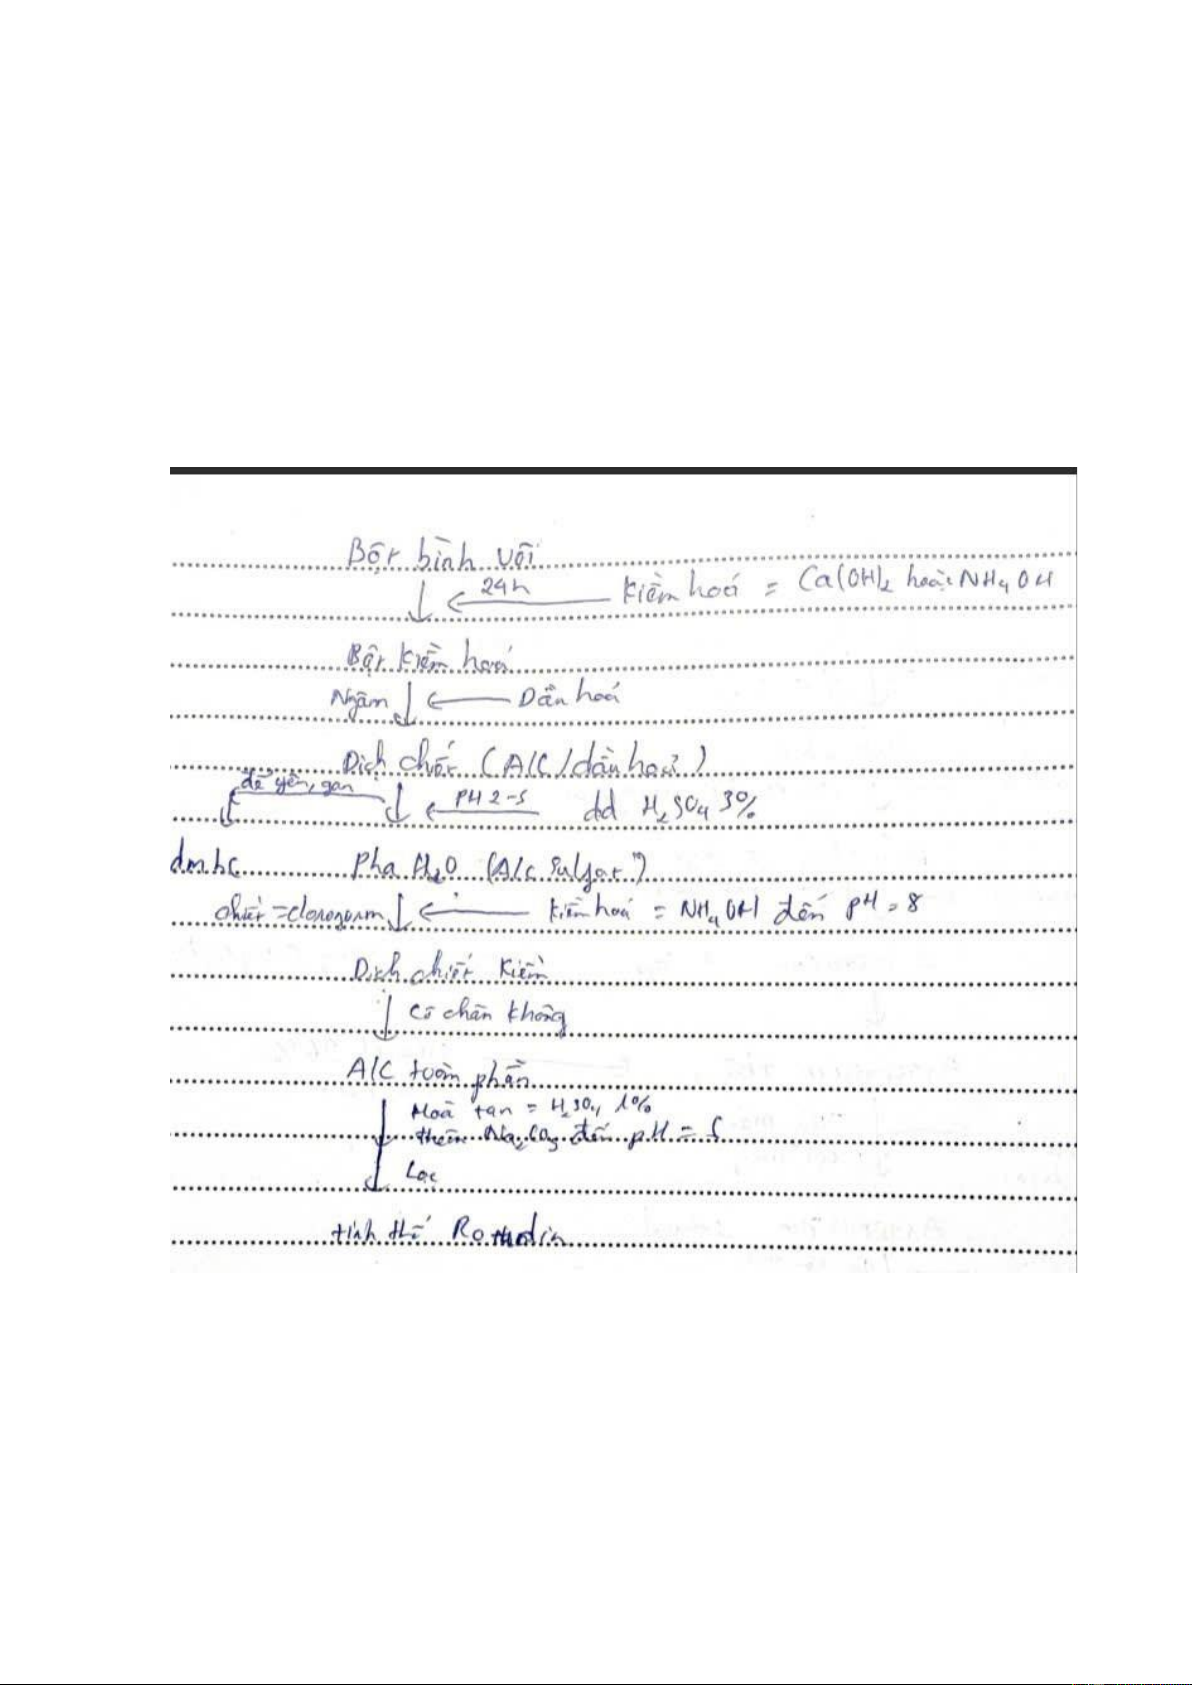 Bột bình vôi
24h Kiềm hoá = Ca(OH)2 hoặc NH4OH
Bột kiềm hoá
Ngâm Dầu hoả
Dịch chiết (A/C/dầu hoả)
để yên, gạn PH 2-5 dd H2SO4 3%
dmhc Pha H2O (A/c sulfat)
chiết = cloroform Kiềm hoá = NH4OH đến pH = 8
Dịch chiết Kiềm
Cô chân không
A/C toàn phần
Hoà tan = H2SO4 1%
thêm Na2CO3 đến pH = 5
Lọc
tinh thể Rotudin